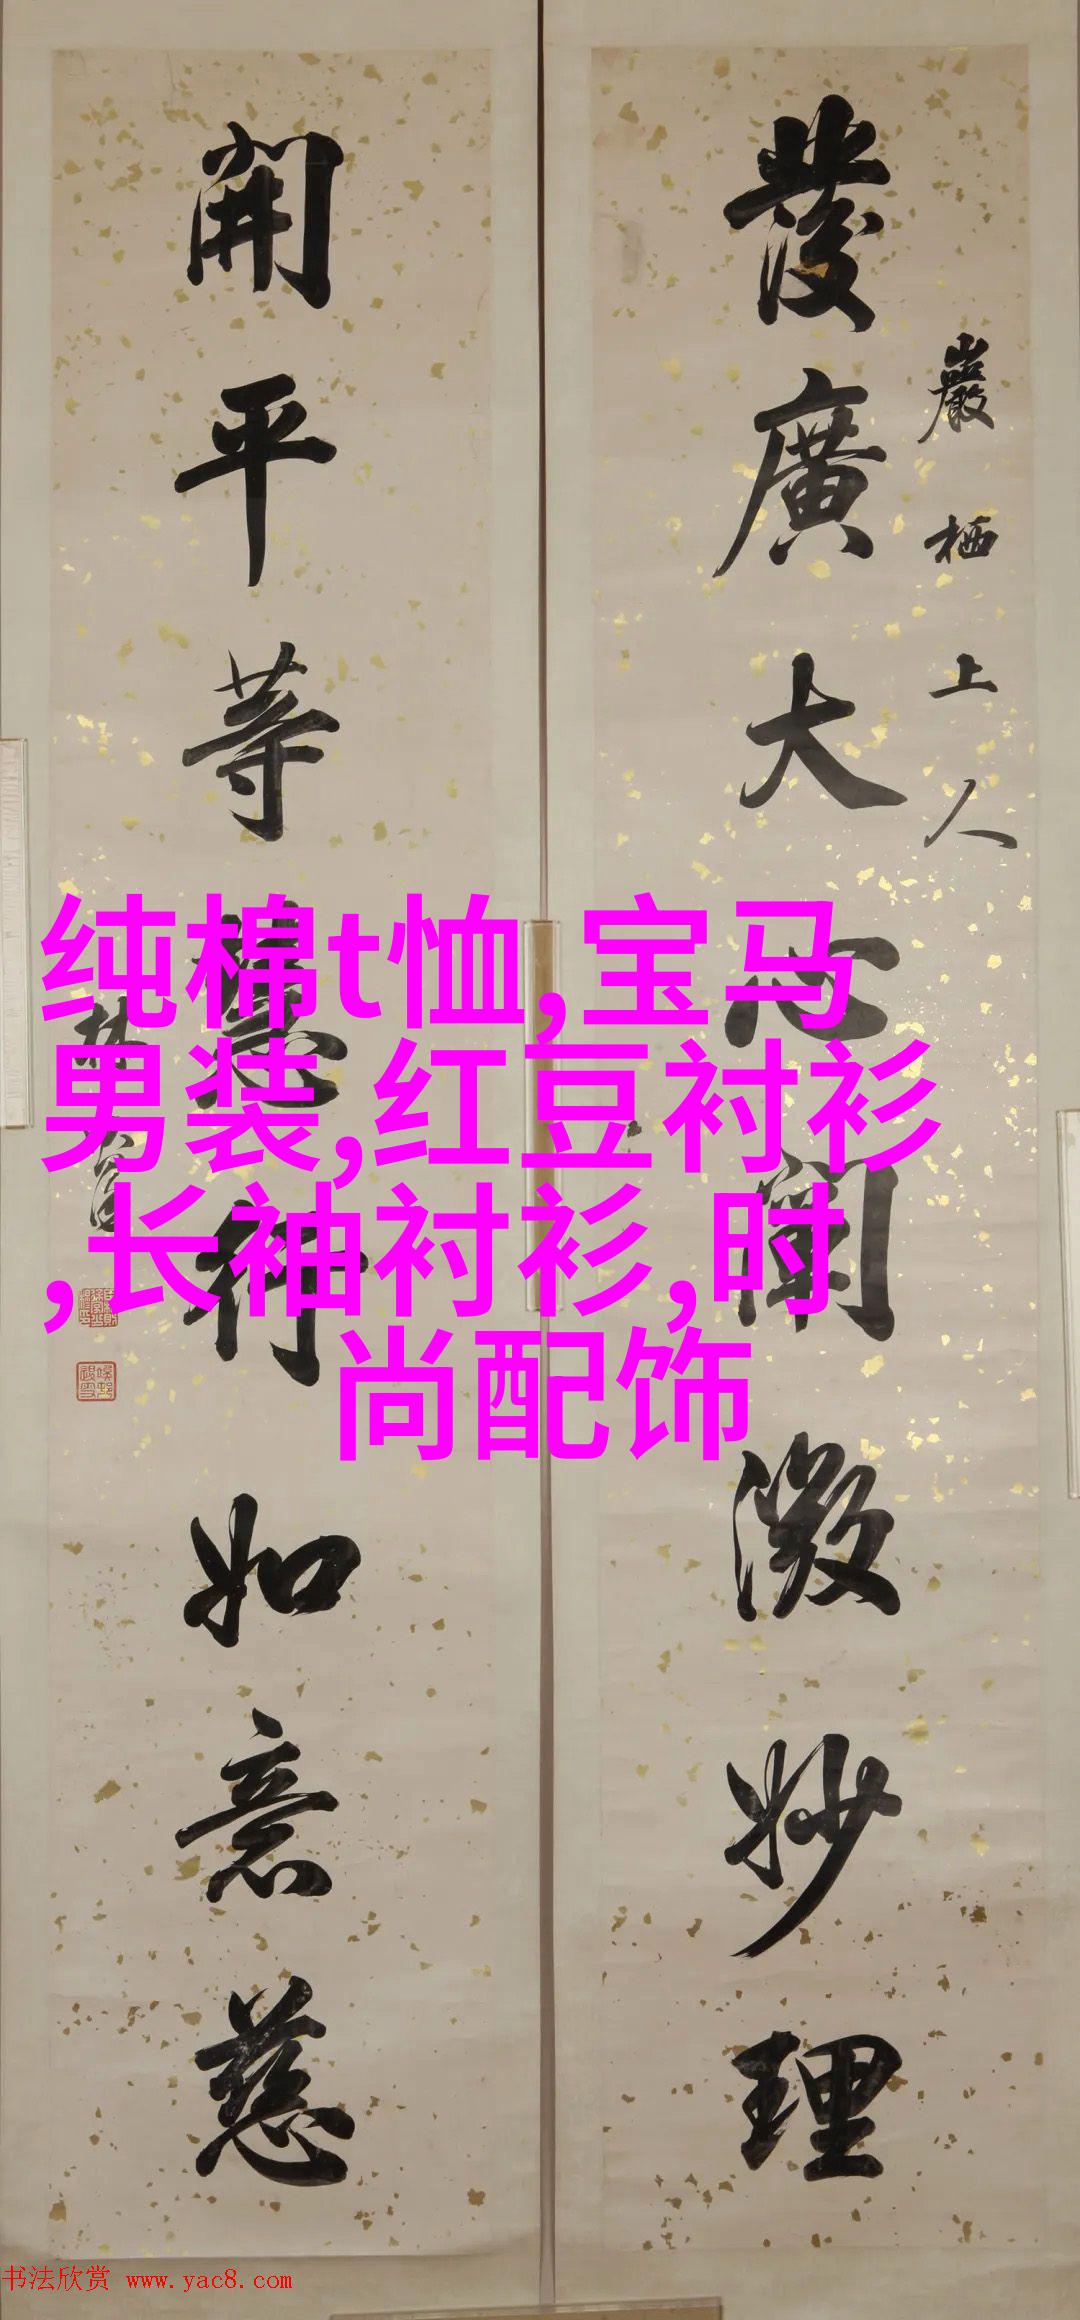 發廣大心闡微妙理
巖栖上人
開平等慧行如意慈
林
纯棉t恤,宝马
男装,红豆衬衫
,长袖衬衫,时
尚配饰
书法欣赏 www.yac8.com